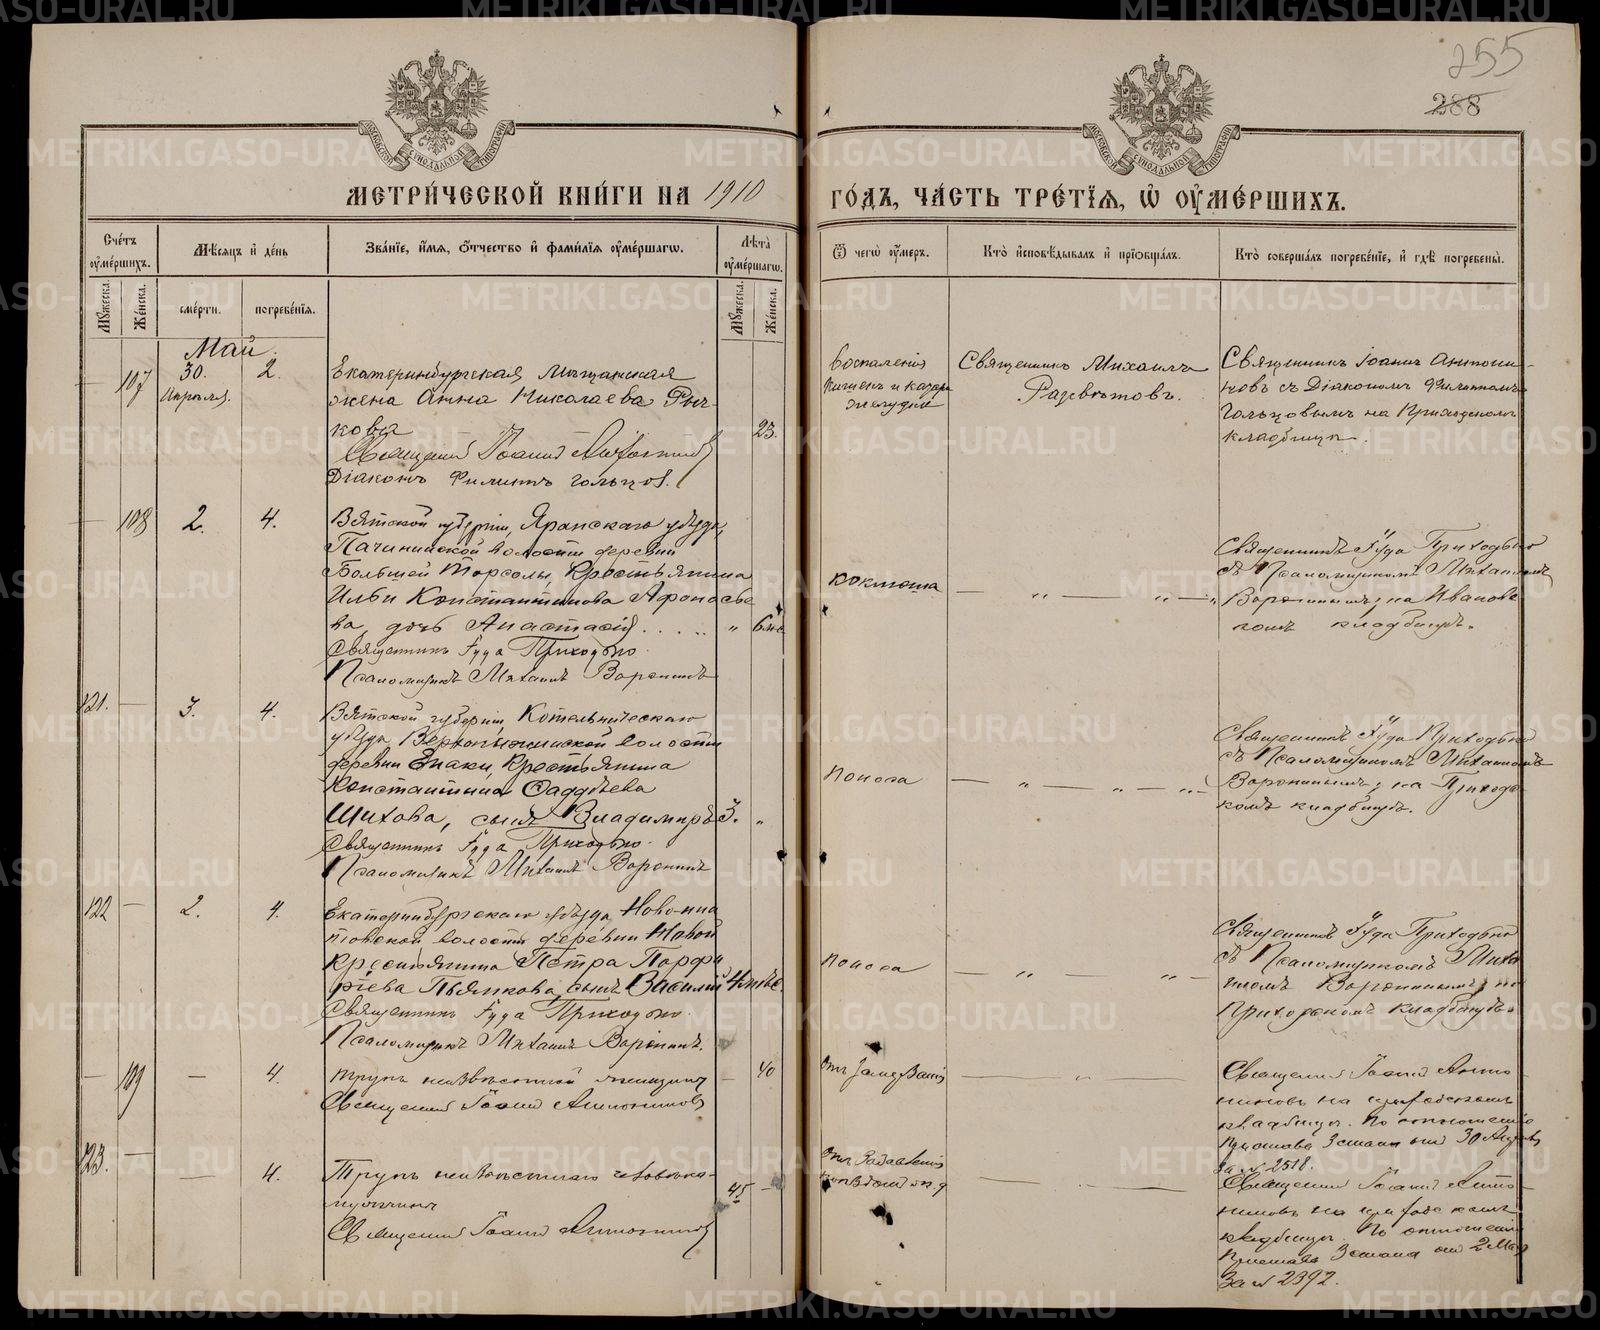 255
288
МОСКОВСКОЙ СѴНОДАЛЬНОЙ ТИПОГРАФІИ
МОСКОВСКОЙ СѴНОДАЛЬНОЙ ТИПОГРАФІИ
МЕТРИ́ЧЕСКОЙ КНИ́ГИ НА 1910 ГО́ДЪ, ЧА́СТЬ ТРЕ́ТІѦ, Ѡ҆ ОУ҆МЕ́РШИХЪ.
Счéтъ оу҆мéршихъ.
Мѣ́сяцъ и҆ дéнь
Звáніе, и҆́мя, ѻ҆́тчество и҆ фами́лія оу҆мéршагѡ.
Лѣ́та оу҆мéршагѡ.
Ѿ чегѡ̀ оу҆́меръ.
Ктò и҆сповѣ́дывалъ и҆ прїѡбщáлъ.
Ктò совершáлъ погребéнїе, и҆ гдѣ̀ погребены̀.
Мꙋ́жеска.
Жéнска.
смéрти.
погребéнїя.
Мꙋ́жеска.
Жéнска.
Май.
107
30.
Апрѣля.
2.
Екатеринбургская Мѣщанская
жена Анна Николаева Рыч-
кова
23.
Священникъ Іоаннъ Антониновъ
Діаконъ Филиппъ Гольцов.
Воспаленія
почекъ и катара
желудка
Священникъ Михаилъ
Разсвѣтовъ.
Священникъ Іоаннъ Антони-
новъ съ Діакономъ Филиппомъ
Гольцовымъ на Приходскомъ
кладбищѣ.
108
2.
4.
Вятской губерніи, Яранскаго уѣзда,
Пачинской волости деревни
Большей Торсолы, Крестьянина
Ильи Константинова Афонасье
ва, дочь Анастасія . . . . . " 6 мѣс
Священникъ Іуда Приходько.
Псаломщикъ Михаилъ Воронинъ
Коклюша
— " — " — "
Священникъ Іуда Приходько
съ Псаломщикомъ Михаиломъ
Воронинымъ; на Иванов-
комъ кладбищѣ.
121.
3.
4.
Вятской губерніи, Котельническаго
уѣзда, Верхопыжинской волости
деревни Знаки, Крестьянина
Константина Фаддѣева
Шихова, сынъ Владиміръ 3. "
Священникъ Іуда Приходько.
Псаломщикъ Михаилъ Воронинъ
Поноса
— " — " — " —
Священникъ Іуда Приходько
съ Псаломщикомъ Михаиломъ
Воронинымъ; на Приходс-
комъ кладбищѣ.
122
2.
4.
Екатеринбургскаго уѣзда, Ново-ипа
товской волости деревни Новой
Крестьянина Петра Порфи
ріева Пьянкова, сынъ Василій 4 мѣс.
Священникъ Іуда Приходько.
Псаломщикъ Михаилъ Воронинъ.
Поноса
— " — " —
Священникъ Іуда Приходько
съ Псаломщикомъ Миха
иломъ Воронинымъ; на
Приходскомъ кладбищѣ
109
—
4.
Трупъ неизвѣстной женщины
— 40
Священникъ Іоаннъ Антониновъ
— " —
Священникъ Іоаннъ Анто-
ниновъ на городскомъ
кладбищѣ. По отношенію
Пристава 3 стана отъ 30 Апрѣля
за № 2518.
123.
—
4.
Трупъ неизвѣстнаго человѣка-
мужчины
45 —
Священникъ Іоаннъ Антониновъ
Отъ задавленія
поѣздомъ ж. д
Священникъ Іоаннъ Анто-
ниновъ на городскомъ
кладбищѣ. По отношенію
Пристава 3 стана отъ 2 Мая
За № 2392.
METRIKI.GASO-URAL.RU